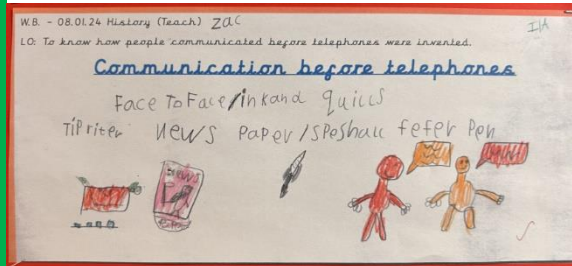 W.B. - 08.01.24 History (Teach) Zac
IIA
LO: To know how people communicated before telephones were invented.
Communication before telephones
Face To Face/inkand quills
TiPriter News PaPer/SPeshall fefer Pen
News